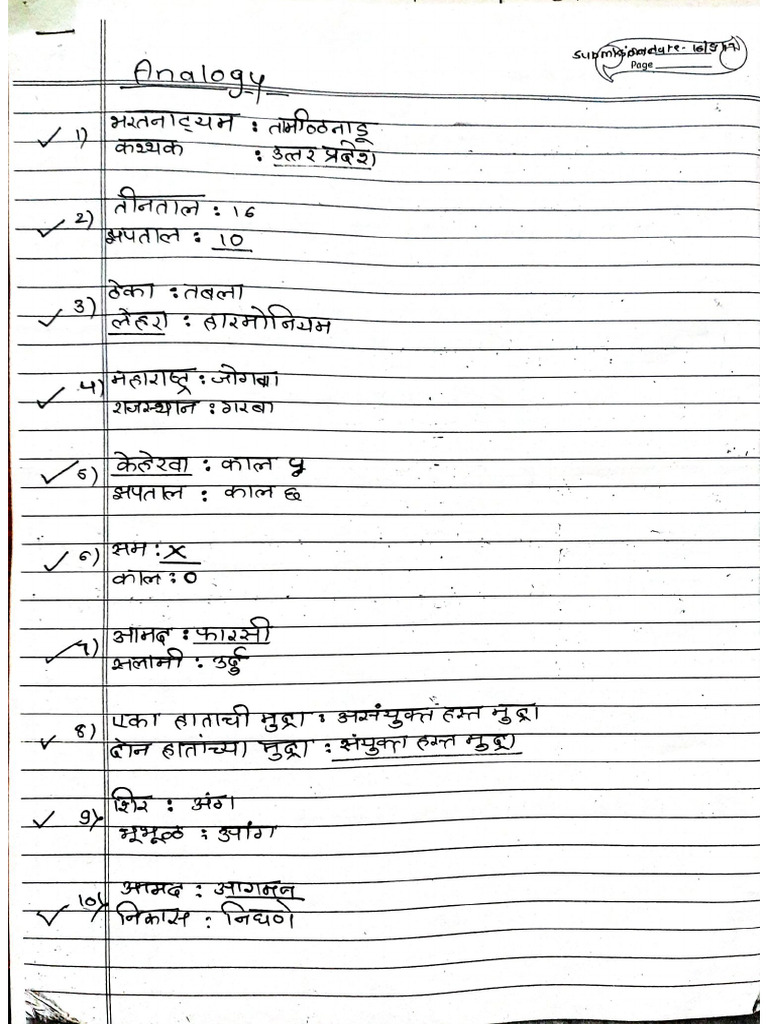 Submission date - 16/9/17
Page
Analogy
1) भरतनाट्यम : तामीळनाडू
कथ्थक : उत्तर प्रदेश
2) तीनताल : 16
झपताल : 10
3) ठेका : तबला
लेहरा : हारमोनियम
4) महाराष्ट्र : जोगवा
राजस्थान : गरबा
5) केहेरवा : काल ५
झपताल : काल ६
6) सम : X
काल : 0
7) आमद : फारसी
सलामी : उर्दु
8) एका हाताची मुद्रा : असंयुक्त हस्त मुद्रा
दोन हातांच्या मुद्रा : संयुक्त हस्त मुद्रा
9) शिर : अंग
भूभूळ : उपांग
10) आमद : आगमन
निकास : निघणे